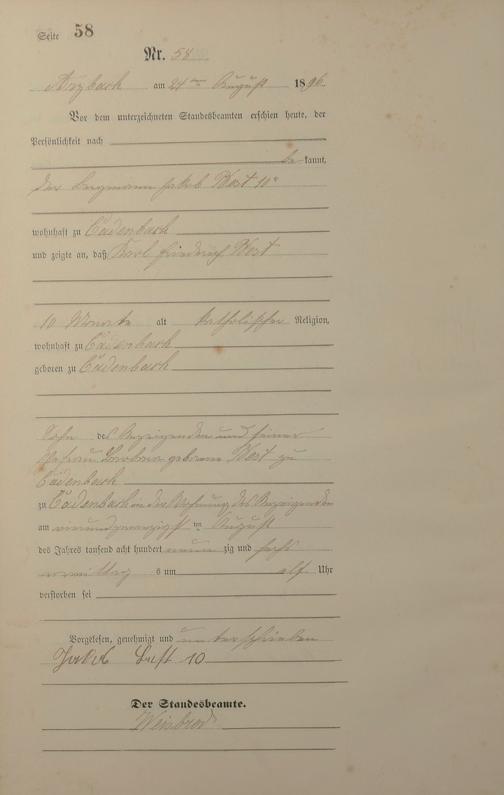 Seite 58
Nr. 58
Arzbach am 24ten August 1896.
Vor dem unterzeichneten Standesbeamten erschien heute, der
Persönlichkeit nach
be kannt,
der Bergmann Jakob
wohnhaft zu Cadenbach
und zeigte an, daß Karl Friedrich
10 Monate alt katholischer Religion,
wohnhaft zu Cadenbach
geboren zu Cadenbach
Sohn des Anzeigenden und seiner
Ehefrau geborene zu
Cadenbach
zu Cadenbach in der Wohnung des Anzeigenden
am vierundzwanzigst en August
des Jahres tausend acht hundert neun zig und sechs
vormittag s um elf Uhr
verstorben sei
Vorgelesen, genehmigt und unterschrieben
Jakob 10
Der Standesbeamte.
Weisbrod